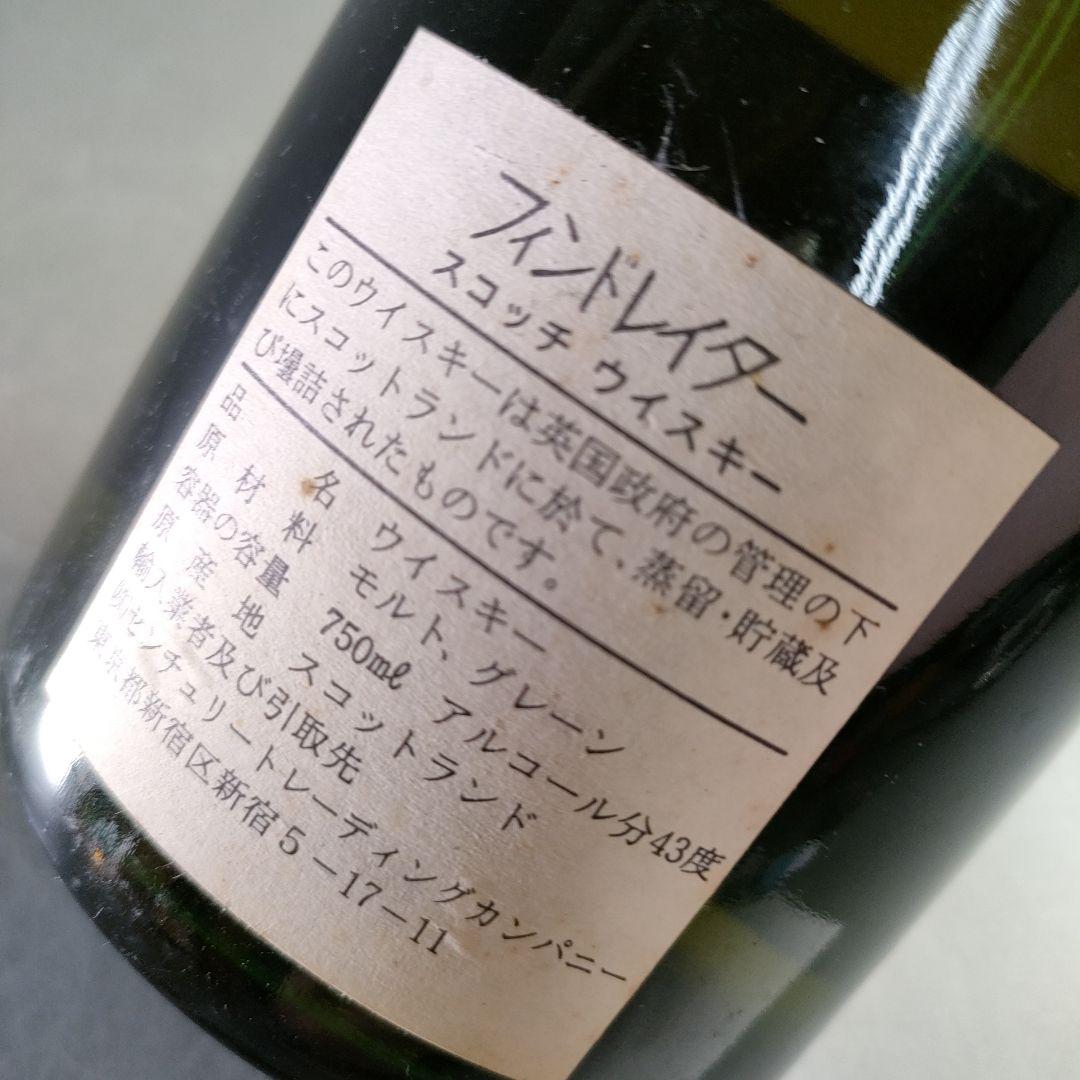 フィンドレイター
スコッチ ウィスキー
このウイスキーは英国政府の管理の下
にスコットランドに於て、蒸留・貯蔵及
び壜詰されたものです。
品名 ウイスキー
原材料 モルト、グレーン
容器の容量 750mℓ アルコール分43度
原産地 スコットランド
輸入業者及び引取先
㈱センチュリートレーディングカンパニー
東京都新宿区新宿5－17－11